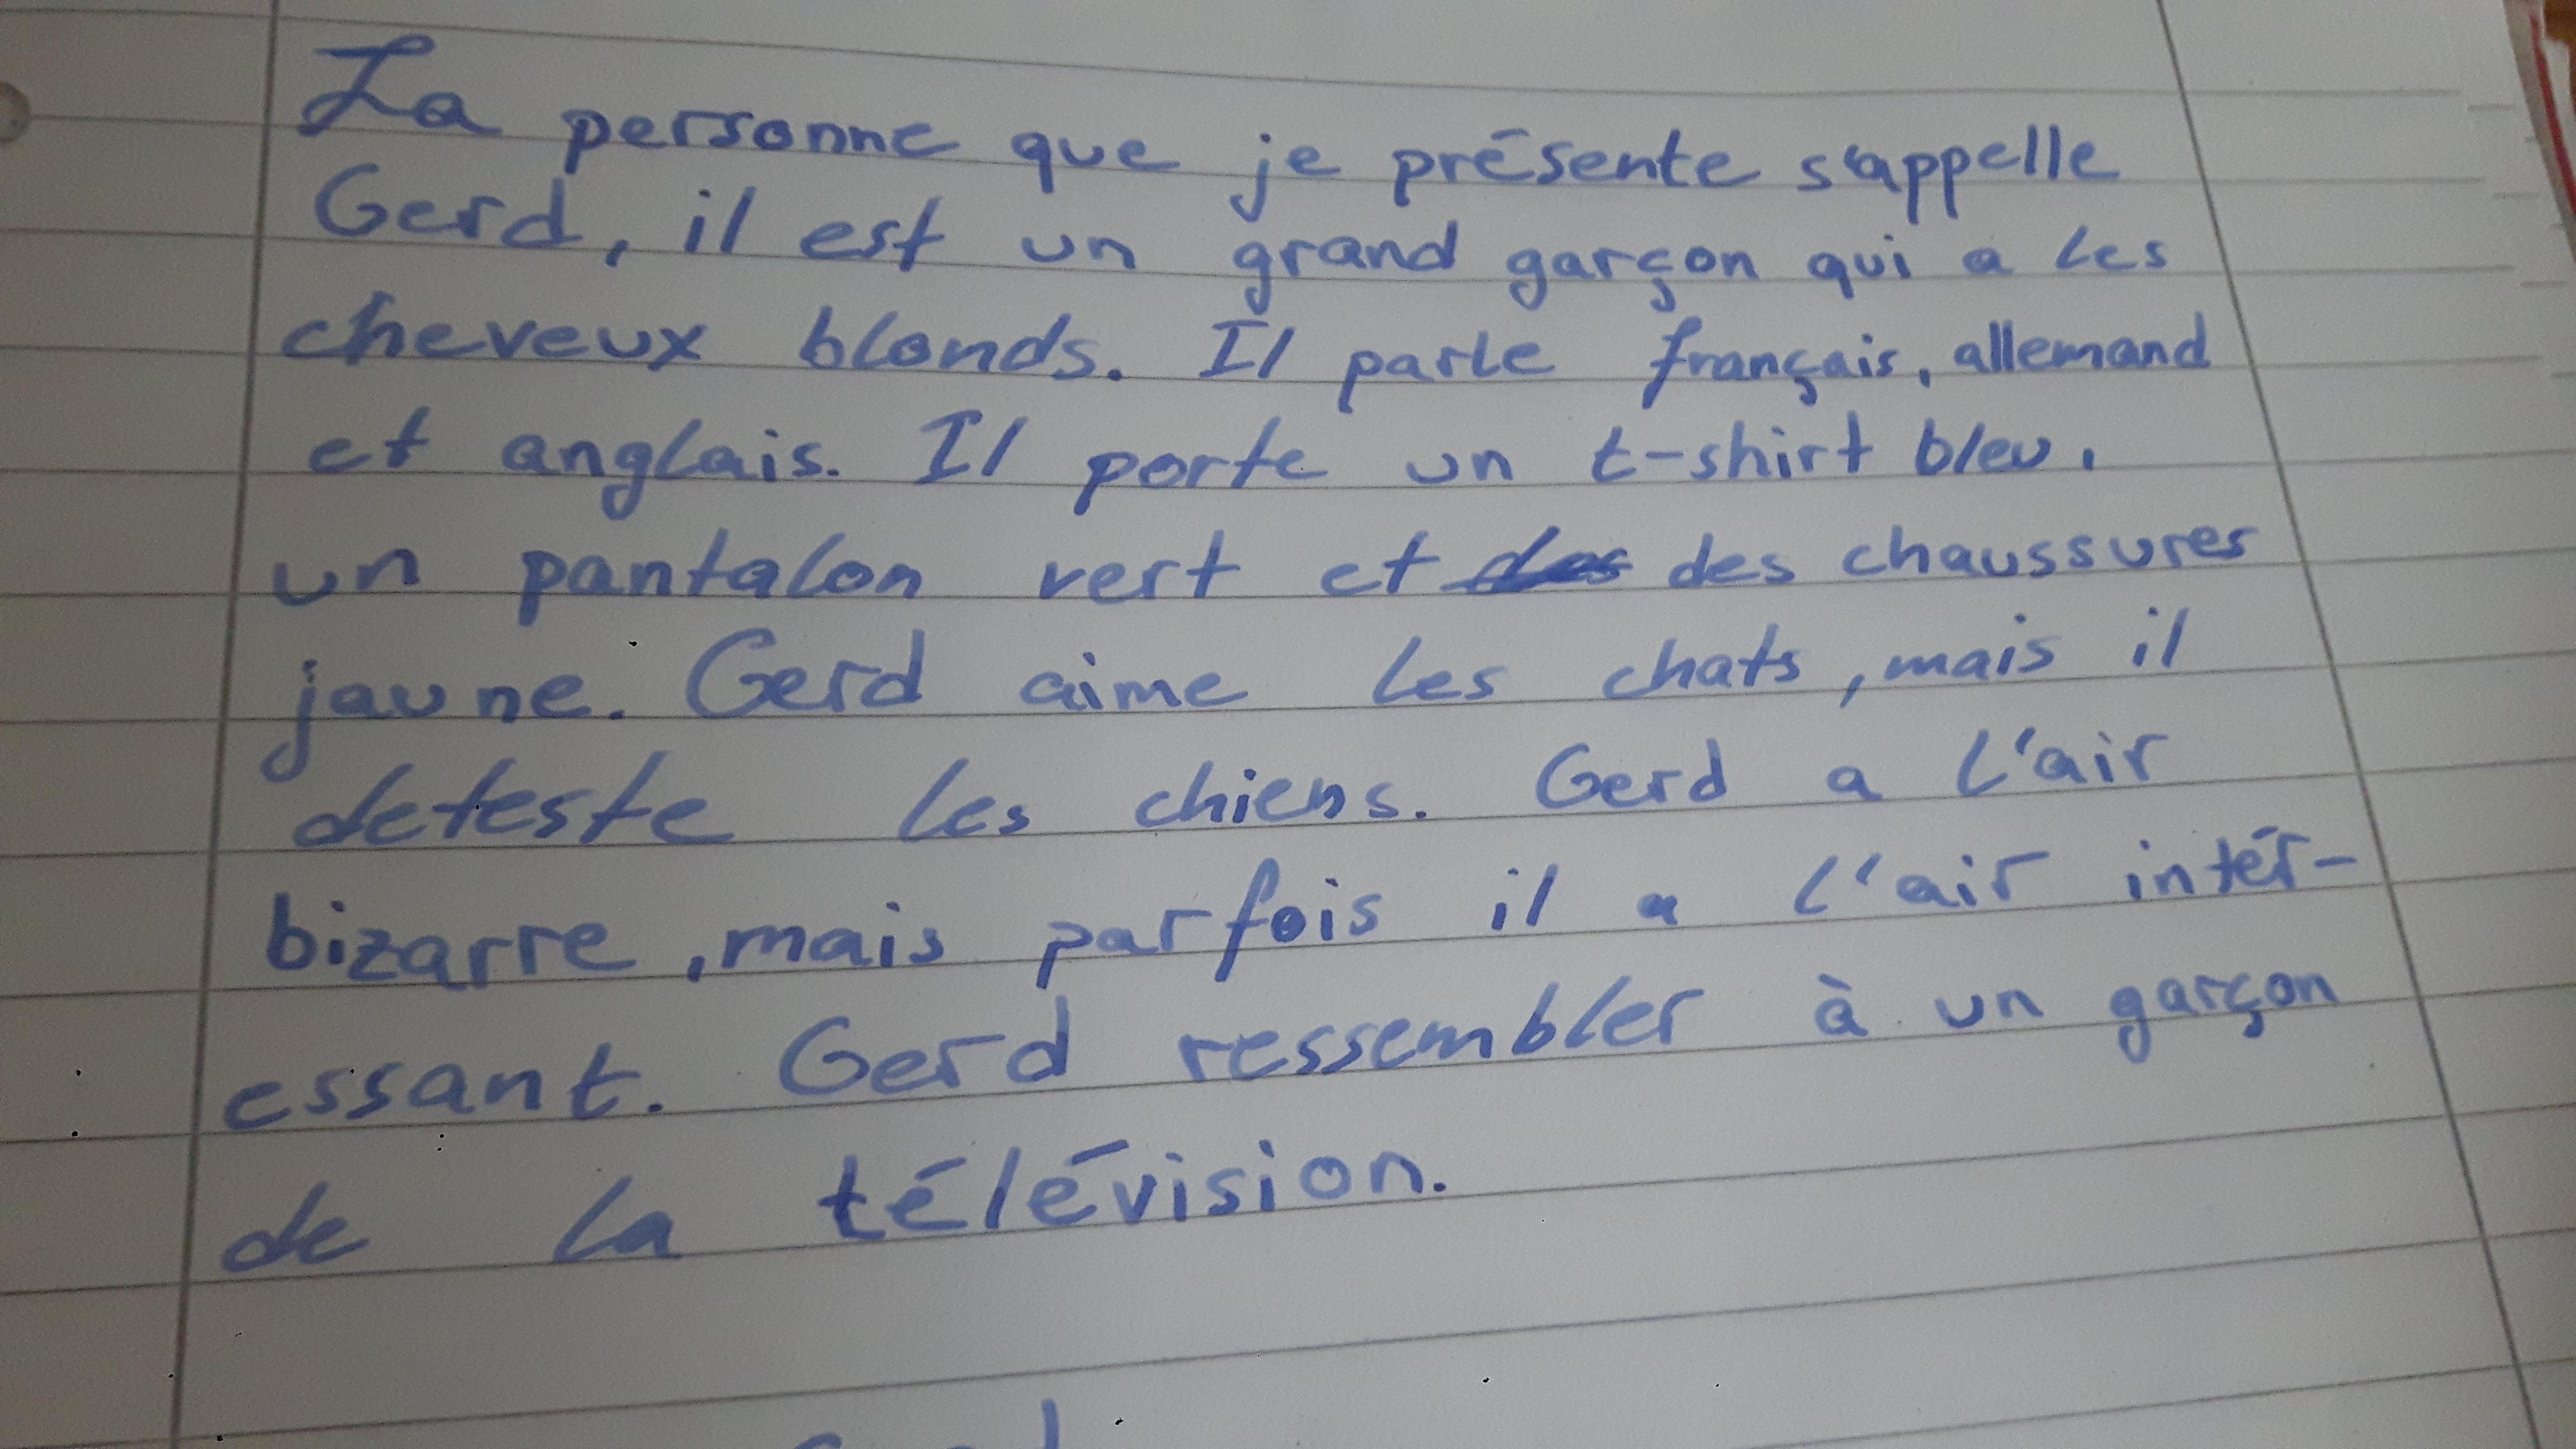 La personne que je présente s'appelle
Gerd, il est un grand garçon qui a les
cheveux blonds. Il parle français, allemand
et anglais. Il porte un t-shirt bleu,
un pantalon vert et des des chaussures
jaune. Gerd aime les chats, mais il
deteste les chiens. Gerd a l'air
bizarre, mais parfois il a l'air intér-
essant. Gerd ressembler à un garçon
de la télévision.